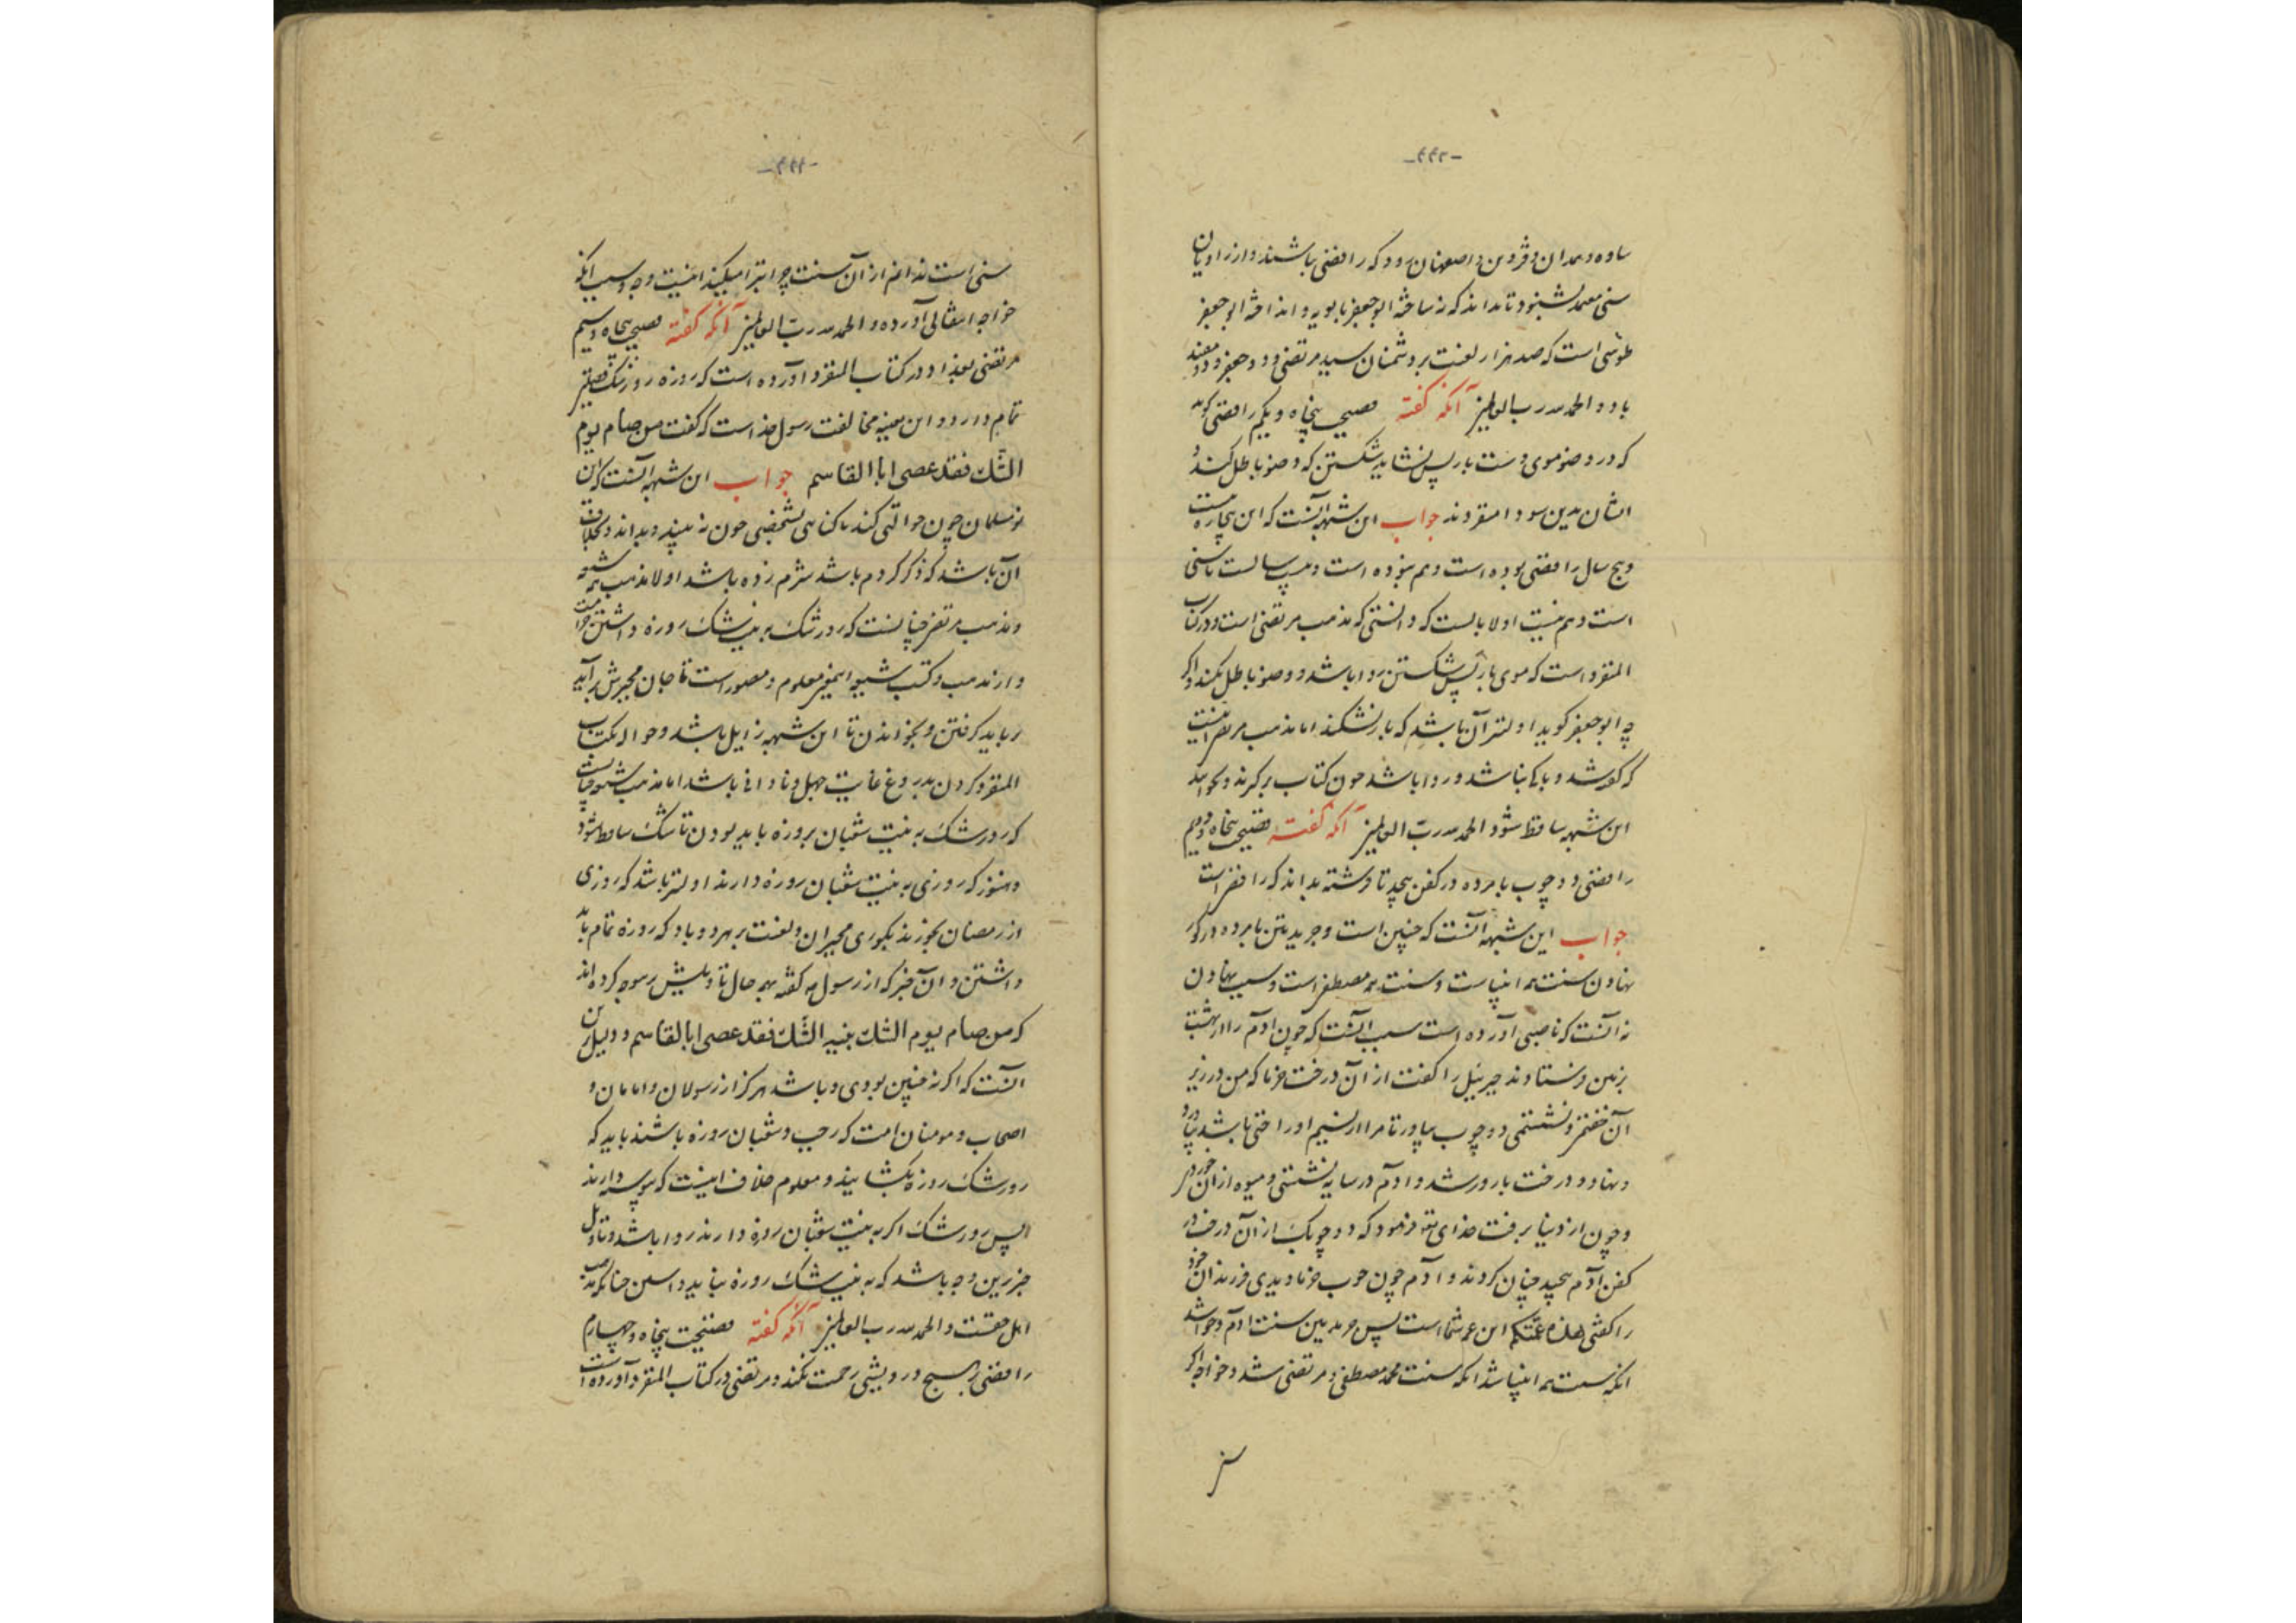 -۴۴۳-
ساوه و همدان و قزوین و اصفهان رود که رافضی باشند و از راویان
سنی معتمد بشنود تا بداند که نه ساخته ابو جعفر بابویه و انداخته ابو جعفر
طوسی است که صد هزار لعنت بر دشمنان سید مرتضی و دو جعفر و دو مفید
باد و الحمد لله رب العالمین آنکه گفته فضیحت پنجاه و یکم رافضی گوید
که در وضو موی دست باز پس نشاید شکستن که وضو باطل کند و
ایشان بدین سودا منفردند جواب این شبهه آنست که این بیچاره بیست
و پنج سال رافضی بوده است و هم نبوده است و سالست تا سنی
است و هم نیست اولا بایست که دانستی که مذهب مرتضی است و در کتاب
المنفرد است که موی باز پس شکستن روا باشد و وضو باطل نکند و اگر
چه ابو جعفر گوید اولیتر آن باشد که باز نشکند اما مذهب مرتضی اینست
که گفته شد و باکی نباشد و روا باشد چون کتاب برگیرند و بخوانند
این شبهه ساقط شود الحمد لله رب العالمین آنکه گفته فضیحت پنجاه و دویم
رافضی دو چوب با مرده در کفن پیچد تا فرشته بداند که رافضی است
جواب این شبهه آنست که چنین است و جریدتین با مرده در گور
نهادن سنت همه انبیاست و سنت مصطفی است و سبب نهادن
نه آنست که ناصبی آورده است سبب آنست که چون آدم را از بهشت
بزمین فرستادند جبرئیل را گفت از آن درخت خرما که من در زیر
آن خفتمی و نشستمی دو چوب بیاور تا مرا انیسیم او راحتی باشد بیاورد
و بنهاد و درخت بارور شد و آدم در سایه نشستی و میوه از آن خوردی
و چون از دنیا برفت خدای تعالی فرمود که دو چوبک از آن درخت در
کفن آدم پیچید چنان کردند و آدم چون چوب خرما دیدی فرزندان خود
را گفتی هذه عمتکم این عمه شماست پس جریدتین سنت آدم و حوا شد
آنکه سنت همه انبیا شد آنکه سنت محمد مصطفی و مرتضی شد و خواجه اگر
سنی
-۴۴۴-
سنی است ندانم از آن سنت چرا تبرا میکند اینست وجه و سبب آنکه
خواجه انتقالی آورده و الحمد لله رب العالمین آنکه گفته فضیحت پنجاه و سیم
مرتضی بغداد در کتاب المنفرد آورده است که روزه روز شک فضیلتی
تمام دارد و این بعینه مخالفت رسول خداست که گفت من صام یوم
الشک فقد عصی ابا القاسم جواب این شبهه آنست که این
نومسلمان چون حوالتی کند با کتابی بشخصی چون نه ببیند و بداند و بخلاف
آن باشد که ذکر کردم باشد شرم زده باشد اولا مذهب شیعه
و مذهب مرتضی چنانست که روز شک بر نیت شک روزه داشتن حرامست
و از مذهب و کتب شیعه این معنی معلوم و مصور است تا جان مجبرش برآید
بباید گرفتن و بخواندن تا این شبهه زایل باشد و حواله بکتاب
المنفرد کردن بدروغ غایت جهل و نادانی باشد اما مذهب شیعه چنانست
که روز شک به نیت شعبان بروزه باید بودن تا شک ساقط شود
و هنوز که روزی به نیت شعبان روزه دارند اولیتر باشد که روزی
از رمضان بخورند بکوری مجبران و لعنت بر هر دو باد که روزه تمام باید
داشتن و آن خبر که از رسول گفته بهمه حال تاویلش رسوجه کرده اند
که من صام یوم الشک بنیه الشک فقد عصی ابا القاسم و دلیل برین
آنست که اگر نه چنین بودی و باشد هرگز از رسولان و امامان و
اصحاب و مومنان امت که رجب و شعبان روزه باشند باید که
روز شک روزه بگشایند و معلوم خلاف اینست که پیوسته دارند
پس روز شک اگر به نیت شعبان روزه دارند روا باشد و تاویل
خبر برین وجه باشد که به نیت شک روزه نباید داشتن چنانکه مذهب
اهل حقست و الحمد لله رب العالمین آنکه گفته فضیحت پنجاه و چهارم
رافضی بر هیچ درویشی رحمت نکند و مرتضی در کتاب المنفرد آورده است